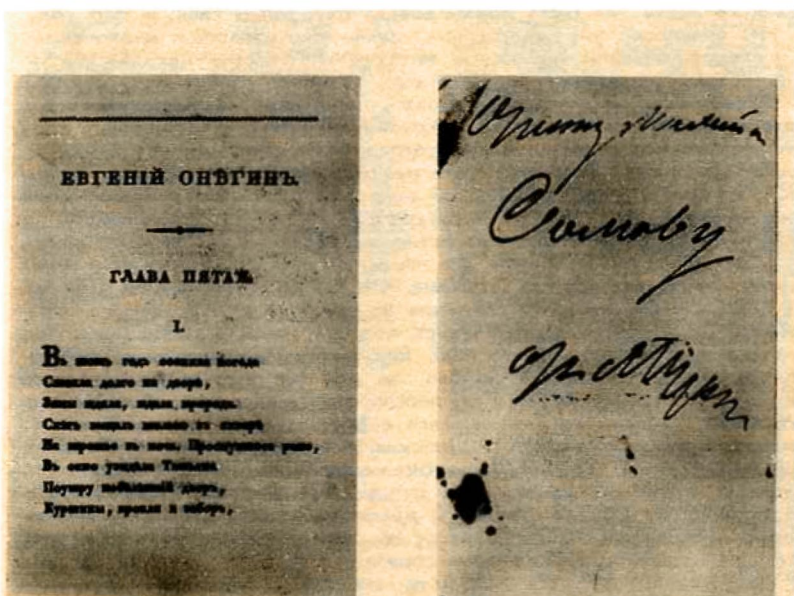 ЕВГЕНІЙ ОНѢГИНЪ.
ГЛАВА ПЯТАЯ.
I.
Въ тотъ годъ осенняя погода
Стояла долго на дворѣ,
Зимы ждала, ждала природа.
Снѣгъ выпалъ только въ январѣ
На третье въ ночь. Проснувшись рано,
Въ окно увидѣла Татьяна
Поутру побѣлѣвшій дворъ,
Куртины, кровли и заборъ,
Оресту
Сомову